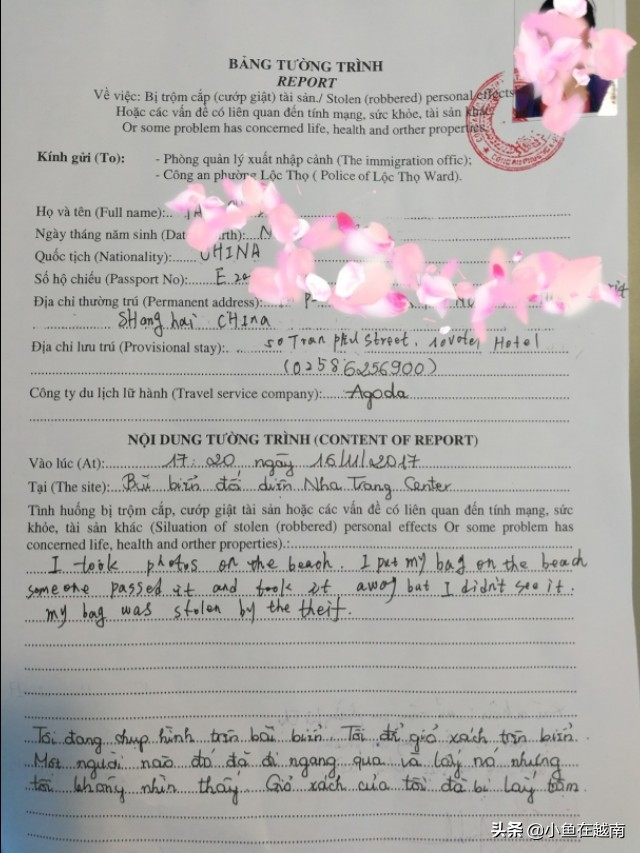 BẢNG TƯỜNG TRÌNH
REPORT
Về việc: Bị trộm cắp (cướp giật) tài sản./ Stolen (robbered) personal effects
Hoặc các vấn đề có liên quan đến tính mạng, sức khỏe, tài sản khác
Or some problem has concerned life, health and orther properties.
Kính gửi (To):
- Phòng quản lý xuất nhập cảnh (The immigration offic);
- Công an phường Lộc Thọ ( Police of Lộc Thọ Ward).
Họ và tên (Full name):
Ngày tháng năm sinh (Dat
Quốc tịch (Nationality): CHINA
Số hộ chiếu (Passport No): E
Địa chỉ thường trú (Permanent address):
Shanghai CHINA
Địa chỉ lưu trú (Provisional stay): 50 Tran phu Street, novotel Hotel
(02586256900)
Công ty du lịch lữ hành (Travel service company): Agoda
NỘI DUNG TƯỜNG TRÌNH (CONTENT OF REPORT)
Vào lúc (At): 17:20 ngày 16/11/2017
Tại (The site): Bãi biển đối diện Nha Trang Center
Tình huống bị trộm cắp, cướp giật tài sản hoặc các vấn đề có liên quan đến tính mạng, sức
khỏe, tài sản khác (Siluation of stolen (robbered) personal effects Or some problem has
concerned life, health and orther properties).:
I took photos on the beach. I put my bag on the beach
someone passed it and took it away but I didn't see it.
my bag was stolen by the theif.
Tôi đang chụp hình trên bãi biển. Tôi để giỏ xách trên biển.
Một người nào đó đã đi ngang qua và lấy nó nhưng
tôi không nhìn thấy. Giỏ xách của tôi đã bị lấy trộm
头条 @小鱼在越南